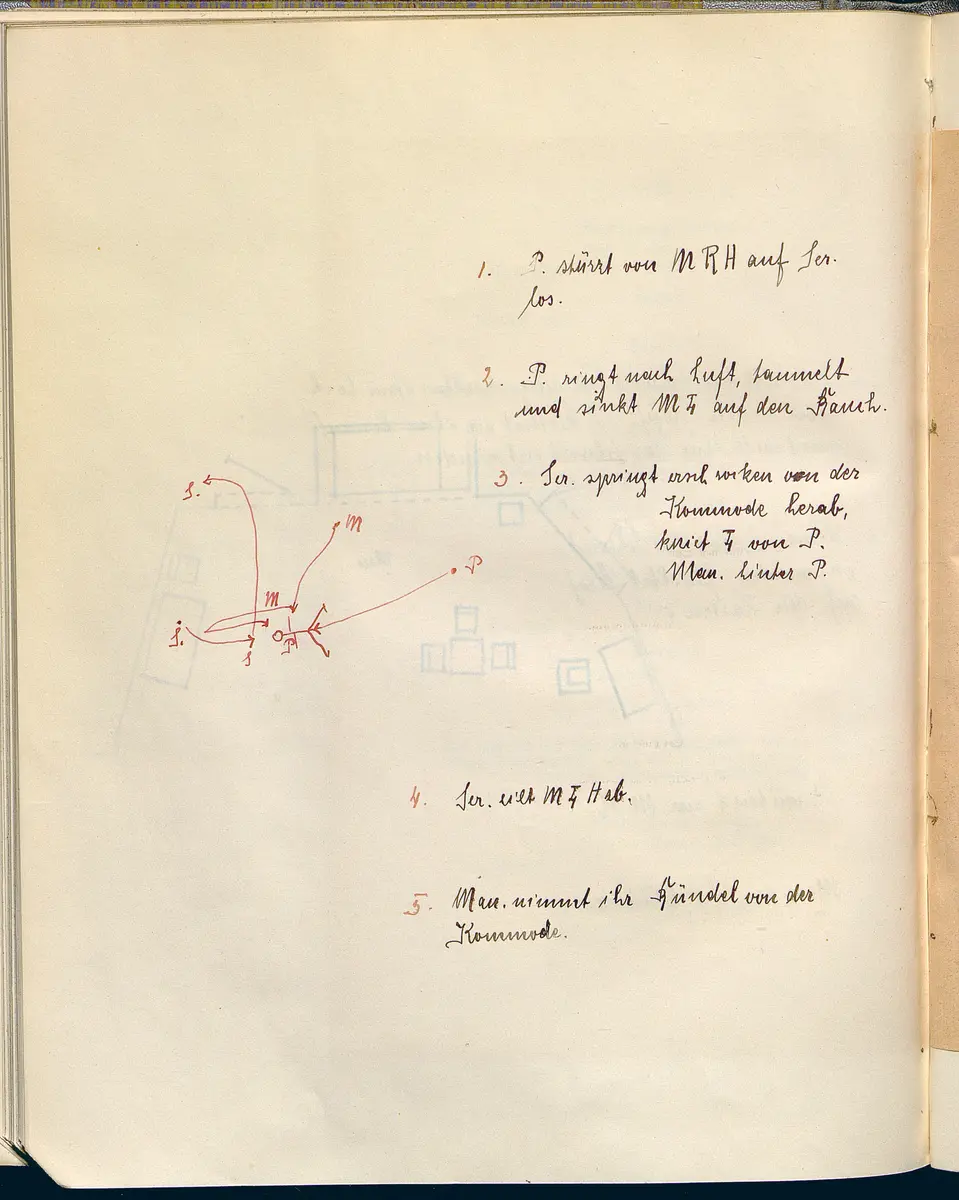 1. P. stürzt von M R H auf Ser.
los.
2. P. ringt nach Luft, taumelt
und sinkt M L auf den Bauch.
3. Ser. springt erschrocken von der
Kommode herab,
S. M
kniet L von P.
P
Man. hinter P.
M
S. P
S
4. Ser. eilt M L H ab.
5. Man. nimmt ihr Bündel von der
Kommode.